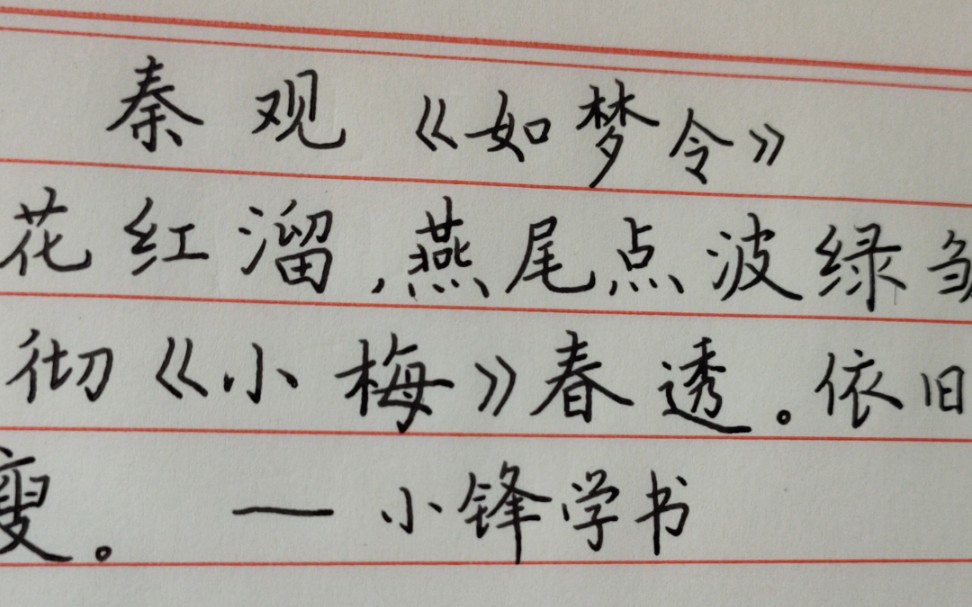 秦观《如梦令》
花红溜,燕尾点波绿
彻《小梅》春透。依旧
瘦。 — 小锋学书